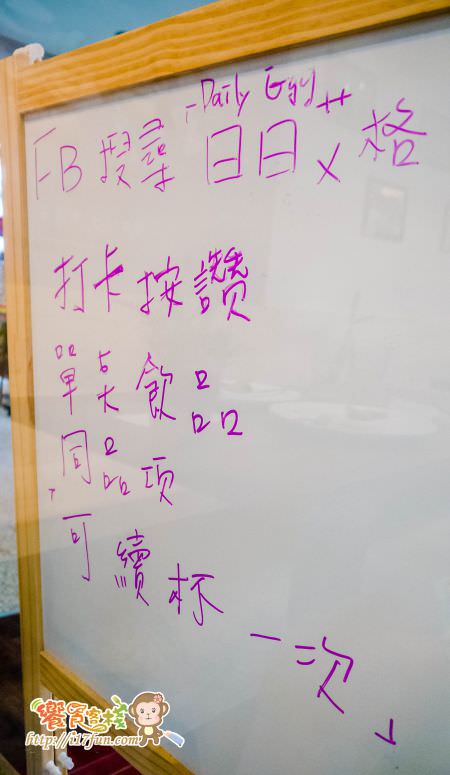 Daily Egg++
FB搜尋 日日×格
打卡按讚
單点飲品
同品項
可續杯
一次
饗食客棧
http://i17fun.com/